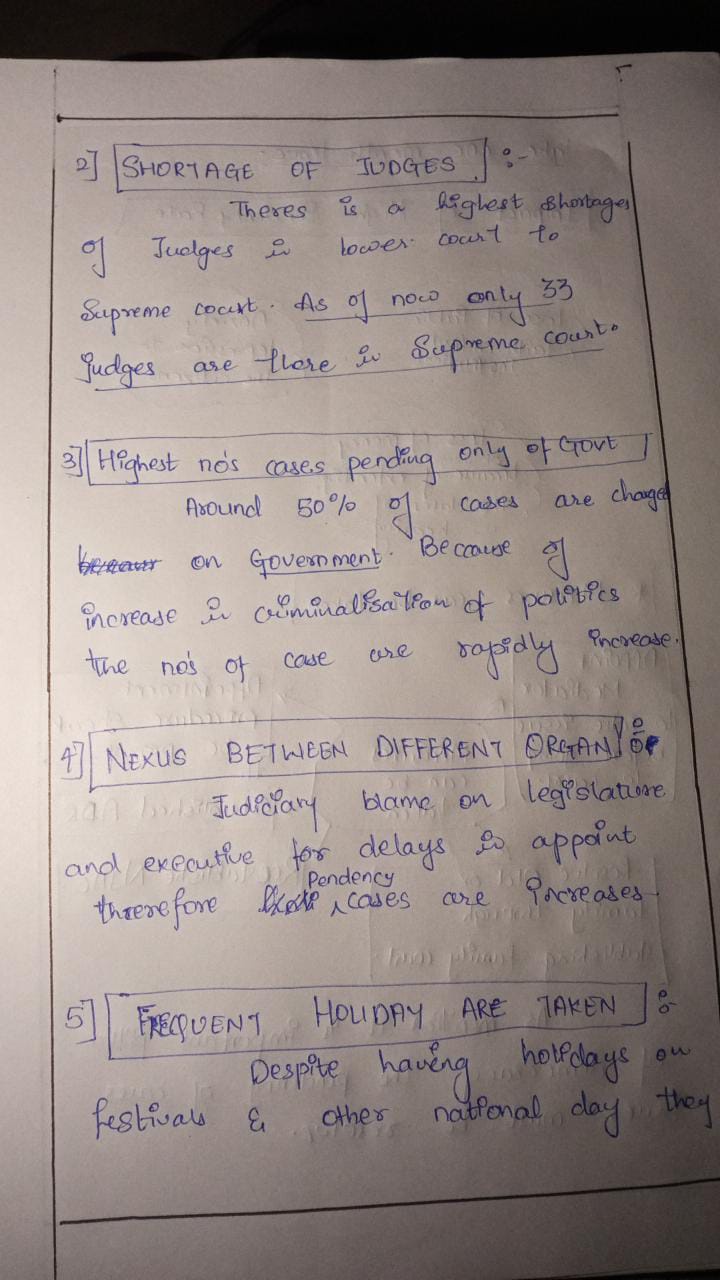 2] SHORTAGE OF JUDGES :-
Theres is a highest shortages
of Judges in lower court to
Supreme court. As of now only 33
judges are there in Supreme court.
3] Highest no's cases pending only of Govt
Around 50% of cases are charged
on Government. Because of
increase in criminalisation of politics
the no's of case are rapidly increase.
4] NEXUS BETWEEN DIFFERENT ORGAN :-
Judiciary blame on legislature
and executive for delays in appoint
therefore Pendency cases are increases
5] FREQUENT HOLIDAY ARE TAKEN :-
Despite having holidays on
festivals & other national day they